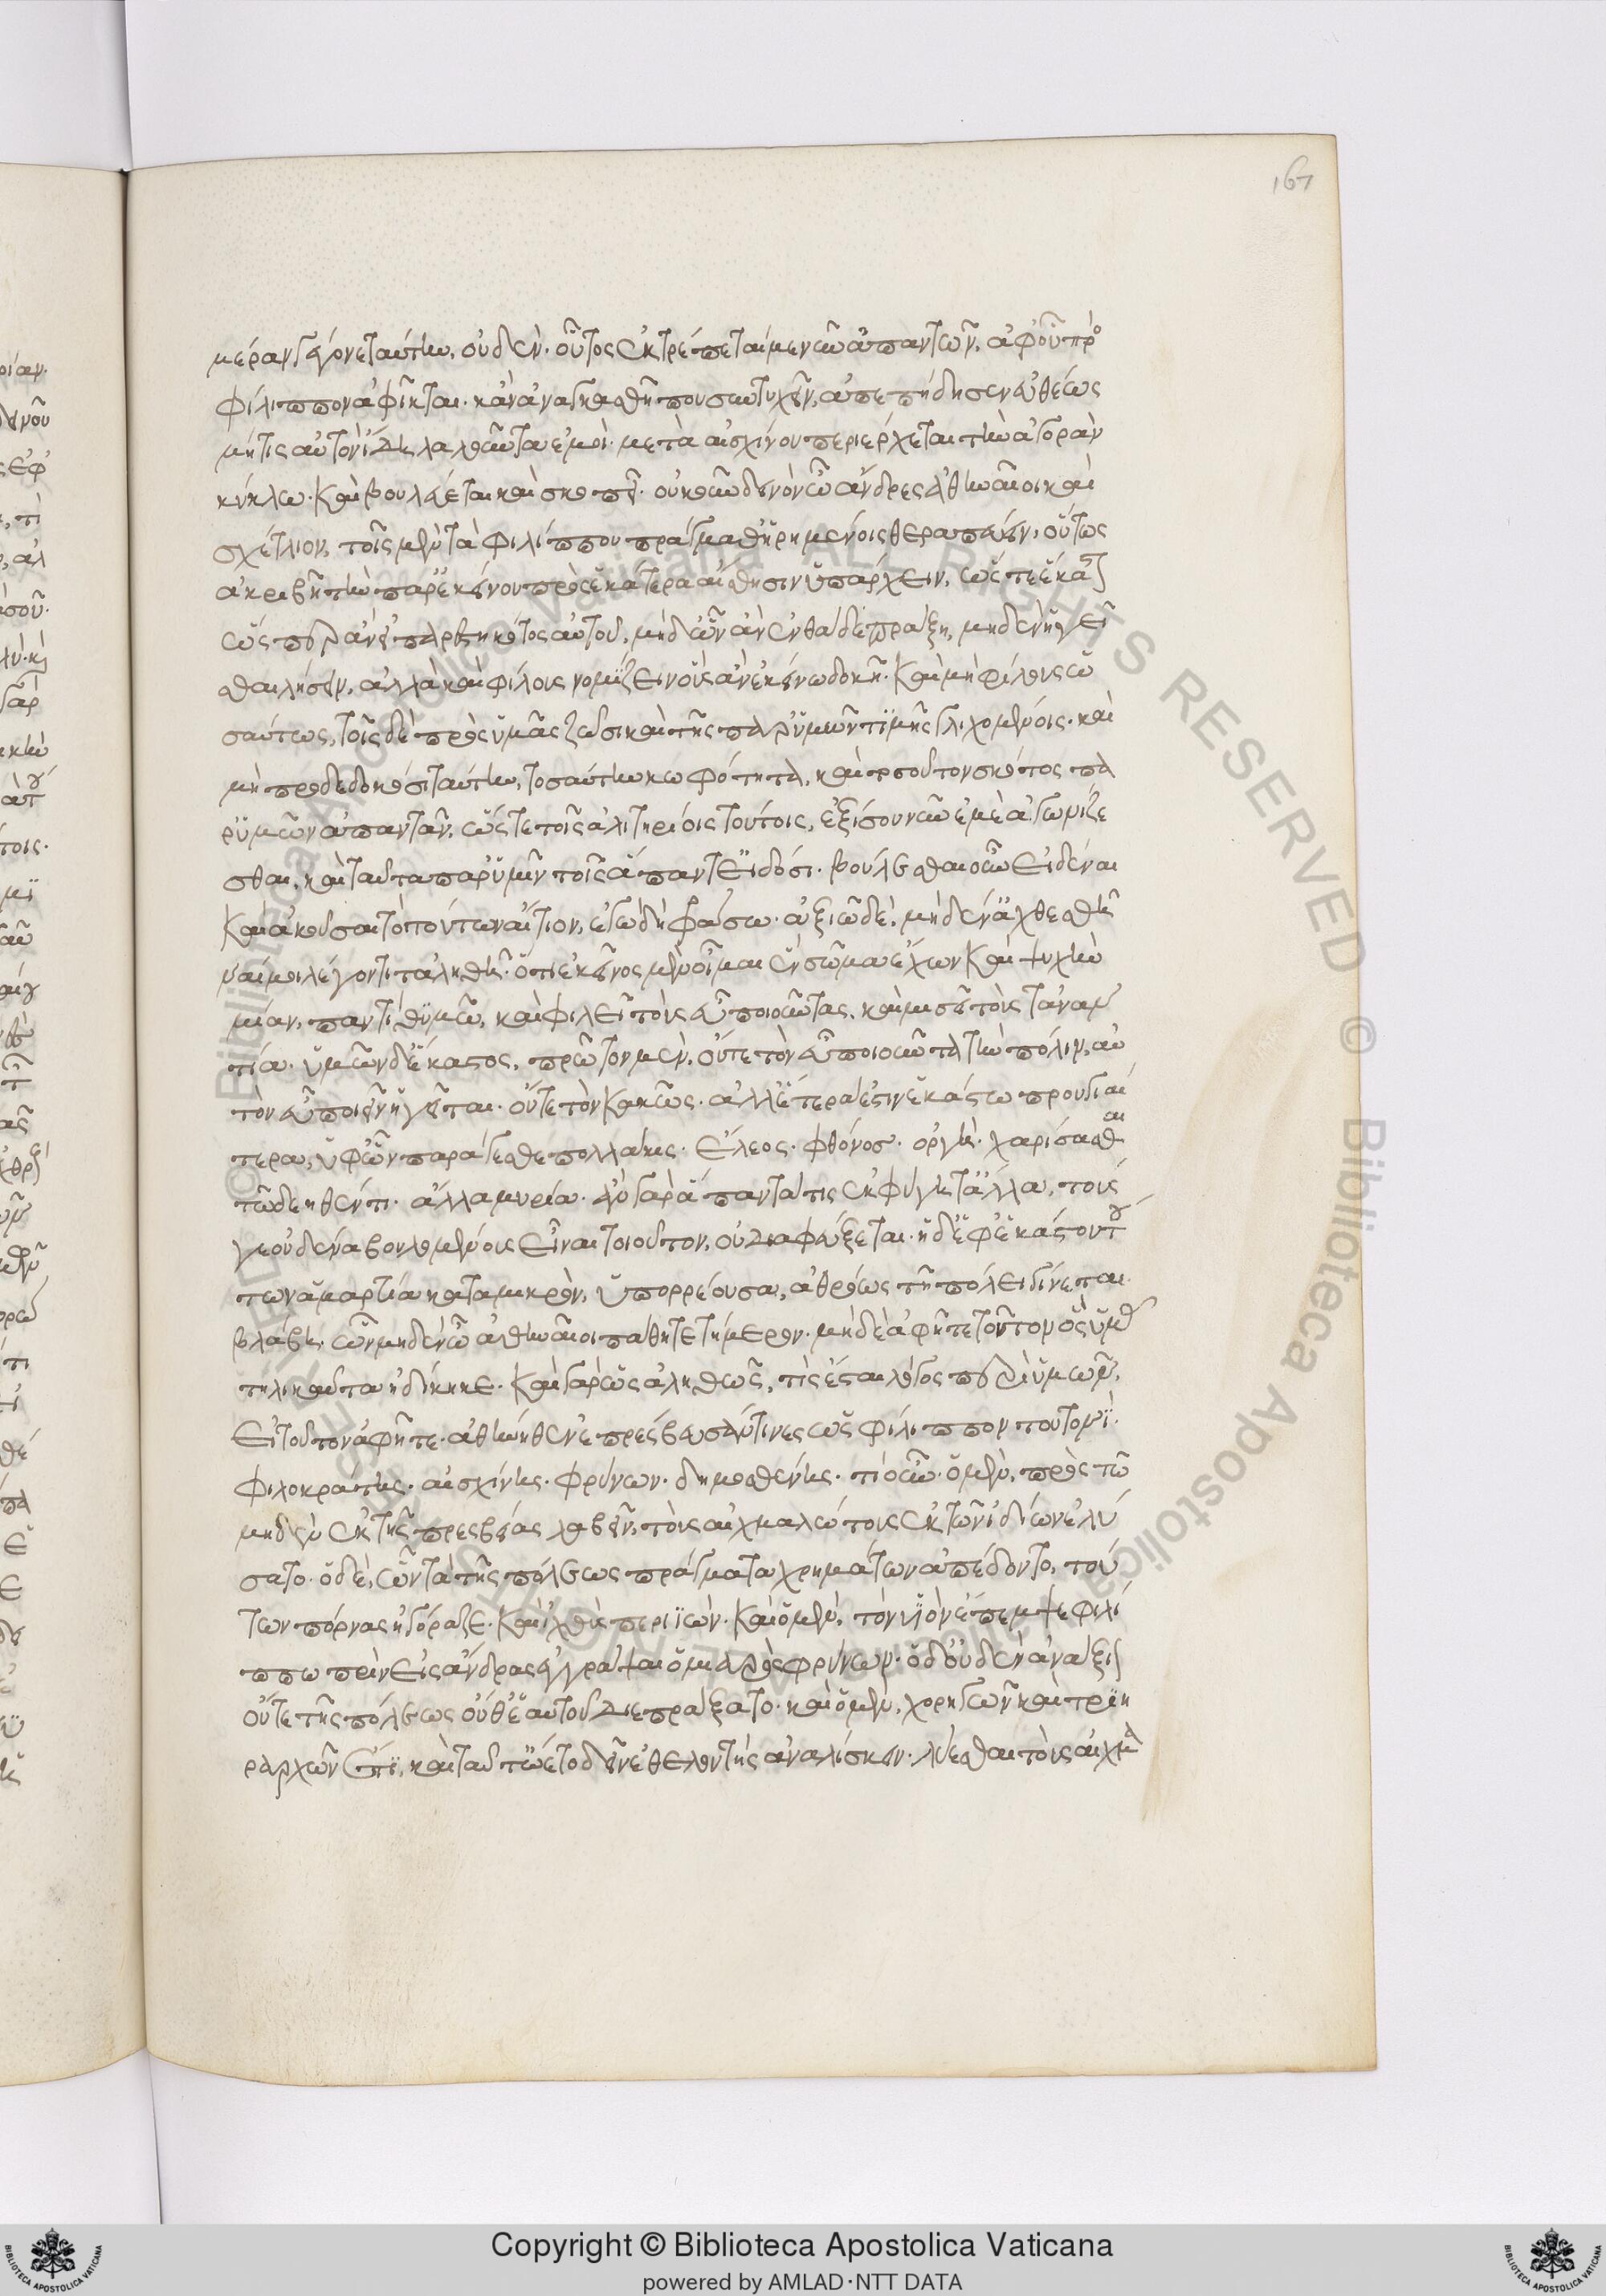 μέραν γέγονε ταύτην, οὐδέν· οὗτος ἐκτρέπεταί με νῦν ἀπαντῶν, ἀφ' οὗ πρὸ
φίλιππον ἀφῖκται· κἂν ἀναγκασθῆ που συντυχεῖν, ἀπεπήδησεν εὐθέως
μή τις αὐτὸν ἴδη λαλοῦντα ἐμοί· μετὰ αἰσχίνου περιέρχεται τὴν ἀγορὰν
κύκλω· καὶ βουλεύεται καὶ σκοπεῖ· οὐκοῦν δεινὸν ὦ ἄνδρες ἀθηναῖοι καὶ
σχέτλιον, τοῖς μὲν τὰ φιλίππου πράγμαθ' ἡρημένοις θεραπεύειν, οὕτως
ἀκριβῆ τὴν παρ' ἐκείνου πρὸς ἑκάτερα αἴσθησιν ὑπάρχειν, ὥστε ἕκαστ
ὥσπερ ἂν παρεστηκότος αὐτοῦ, μηδ' ὧν ἂν ἐνθάδε πράξη, μηδὲν ἡγεῖ
σθαι λήσειν, ἀλλὰ καὶ φίλους νομίζειν οὓς ἂν ἐκείνω δοκῆ· καὶ μὴ φίλους ὡ
σαύτως, τοῖς δὲ πρὸς ὑμᾶς ζῶσι καὶ τῆς παρ' ὑμῶν τιμῆς γλιχομένοις· καὶ
μὴ προδεδωκόσι ταύτην, τοσαύτην κωφότητα, καὶ τοσοῦτον σκότος πα
ρ' ὑμῶν ἀπαντᾶν, ὥστε τοῖς ἀλιτηρίοις τούτοις, ἐξ ἴσου νῦν ἐμὲ ἀγωνίζε
σθαι, καὶ ταῦτα παρ' ὑμῖν τοῖς ἅπαντ' εἰδόσι· βούλεσθαι οὖν εἰδέναι
καὶ ἀκοῦσαι τὸ τούτων αἴτιον, ἐγὼ δὴ φράσω· ἀξιῶ δὲ, μηδένα ἄχθεσθῆ
ναί μοι λέγοντι τἀληθῆ· ὅτι ἐκεῖνος μὲν οἶμαι ἓν σῶμα ἔχων καὶ ψυχὴν
μίαν, παντὶ θυμῶ, καὶ φιλεῖ τοὺς εὖ ποιοῦντας, καὶ μισεῖ τοὺς τἀναν
τία· ὑμῶν δ' ἕκαστος, πρῶτον μὲν, οὔτε τὸν εὖ ποιοῦντα τὴν πόλιν, αὑ
τὸν εὖ ποιεῖν ἡγεῖται· οὔτε τὸν κακῶς· ἀλλ' ἕτερα ἐστιν ἑκάστω προυργιαί
τερα, ὑφ' ὧν παράγεσθε πολλάκις· ἔλεος· φθόνος· ὀργὴ· χαρίσασθαι
τῶ δεηθέντι· ἄλλα μυρία· ἂν γὰρ ἅπαντά τις ἐκφύγη τἄλλα, τούς
γε οὐδένα βουλομένους εἶναι τοιοῦτον, οὐ διαφεύξεται· ἡ δ' ἐφ' ἑκάστου τού
των ἁμαρτία κατὰ μικρὸν, ὑπορρέουσα, ἀθρόως τῆ πόλει γίνεται
βλάβη· ὧν μηδὲν ὦ ἀθηναῖοι πάθητε τήμερον· μηδὲ ἀφῆτε τοῦτον ὃς ὑμᾶς
τηλικαῦτα ἠδίκηκε· καὶ γὰρ ὡς ἀληθῶς, τίς ἔσται λόγος περὶ ὑμῶν,
εἰ τοῦτον ἀφῆτε· ἀθήνηθεν ἐπρέσβευσάν τινες ὡς φίλιππον τουτονί·
φιλοκράτης· αἰσχίνης· φρύνων· δημοσθένης· τί οὖν· ὁ μὲν, πρὸς τῶ
μηδὲν ἐκ τῆς πρεσβείας λαβεῖν, τοὺς αἰχμαλώτους ἐκ τῶν ἰδίων ἐλύ
σατο· ὁ δὲ, ὧν τὰ τῆς πόλεως πράγματα χρημάτων ἀπέδοντο, τού
των πόρνας ἠγόραζε· καὶ ἰχθῦς περιϊών· καὶ ὁ μὲν, τὸν υἱὸν ἔπεμψε φιλί
ππω πρὶν εἰς ἄνδρας ἐγγράψαι ὁ μιαρὸς φρύνων· ὁ δ' οὐδὲν ἀνάξι
οὔτε τῆς πόλεως οὔθ' ἑαυτοῦ διεπράξατο· καὶ ὁ μὲν, χορηγῶν καὶ τριη
ραρχῶν ἔτι, καὶ ταῦτ' ὤετο δεῖν ἐθελοντὴς ἀναλίσκειν· λύεσθαι τοὺς αἰχμα